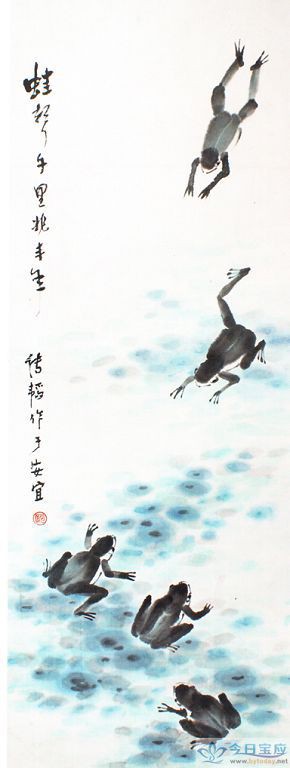 蛙声千里兆丰年
韬作于安宜
今日宝应
www.bytoday.net